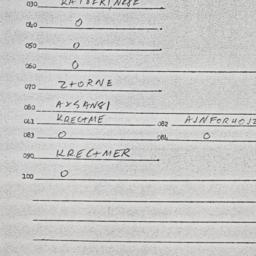 030
040 0
050 0
060 0
070 ZTORNE
080 AYSANGI
081 KRECTME 082 AINFORHOIZ
083 0 084 0
090 KRECTMER
100 0